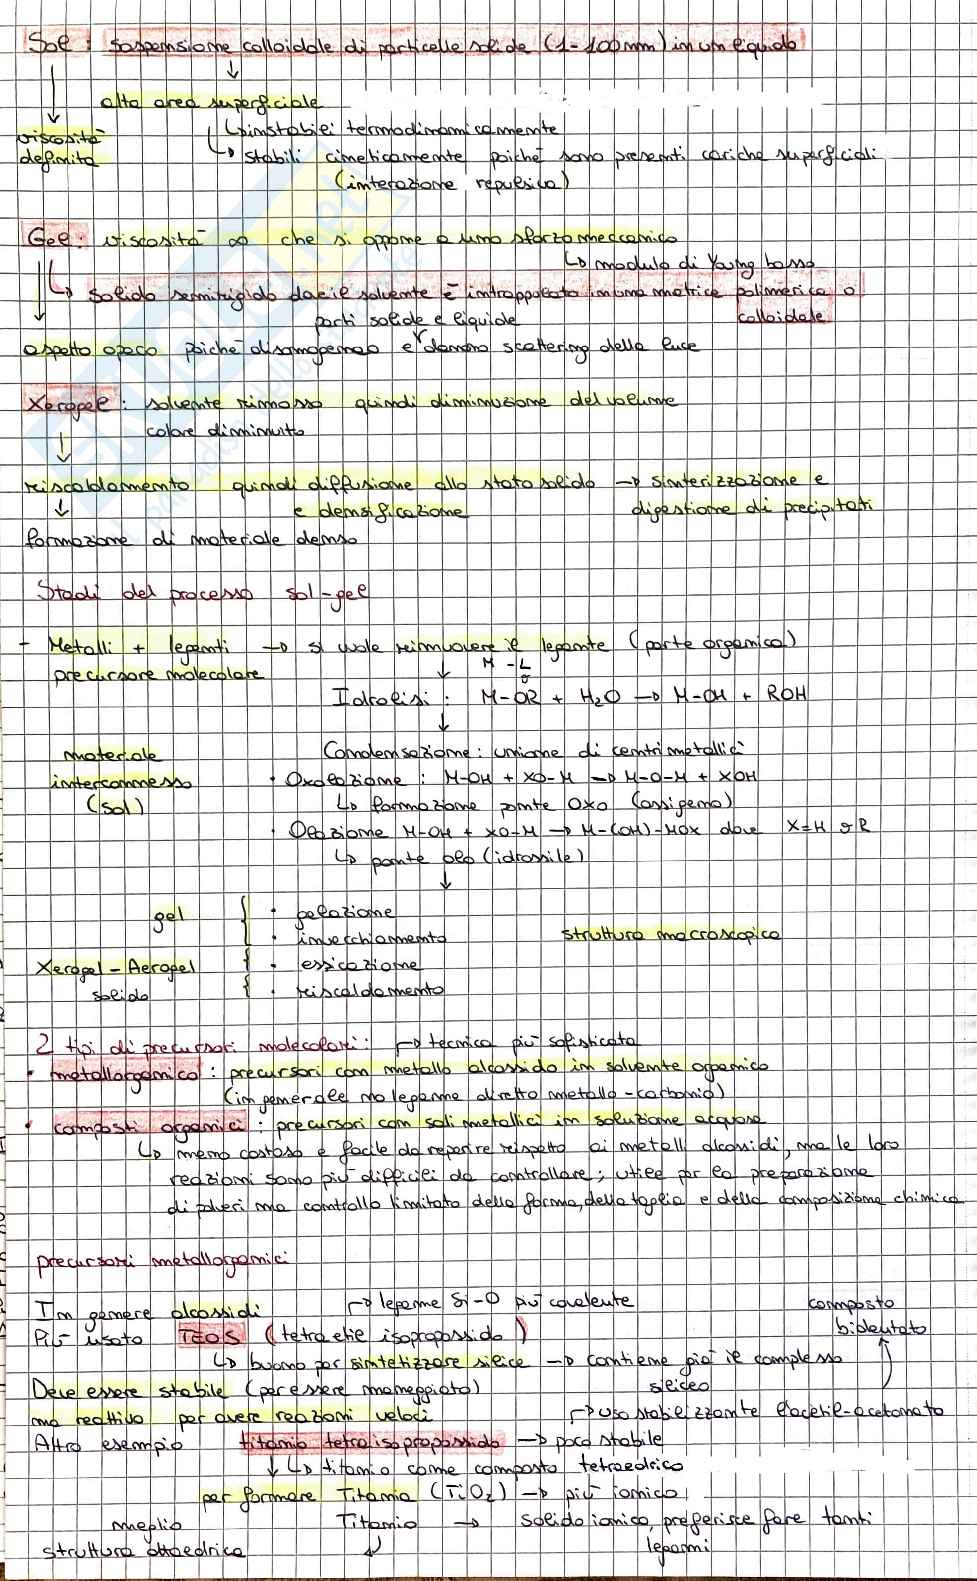 Sol : sospensione colloidale di particelle solide (1-100nm) in un liquido
alta area superficiale
↳ instabili termodinamicamente
viscosità definita
↳ stabili cineticamente poiché sono presenti cariche superficiali
(interazione repulsiva)
Gel : viscosità ∞ che si oppone a uno sforzo meccanico
↳ modulo di Young basso
↳ solido semirigido dove il solvente è intrappolato in una matrice polimerica o colloidale
parti solide e liquide
aspetto opaco poiché disomogeneo e danno scattering della luce
Xerogel : solvente rimosso quindi diminuzione del volume
calore diminuito
riscaldamento quindi diffusione allo stato solido → sinterizzazione e
e densificazione digestione di precipitati
formazione di materiale denso
Stadi del processo sol-gel
- Metalli + leganti → si vuole rimuovere il legante (parte organica)
precursore molecolare M-L
Idrolisi : M-OR + H₂O → M-OH + ROH
materiale interconnesso (sol)
Condensazione : unione di centri metallici
· Oxolazione : M-OH + XO-M → M-O-M + XOH
↳ formazione ponte oxo (ossigeno)
· Olazione M-OH + XO-M → M-(OH)-MOX dove X=H o R
↳ ponte olo (idrossile)
gel { · gelazione
· invecchiamento struttura macroscopica
Xerogel-Aerogel { · essicazione
solido { · riscaldamento
2 tipi di precursori molecolari : → tecnica più sofisticata
· metallorganico : precursori con metallo alcossido in solvente organico
(in generale no legame diretto metallo-carbonio)
· composti organici : precursori con sali metallici in soluzione acquosa
↳ meno costoso e facile da reperire rispetto ai metalli alcossidi, ma le loro
reazioni sono più difficili da controllare; utile per la preparazione
di polveri ma controllo limitato della forma, della taglia e della composizione chimica
precursori metallorganici
In genere alcossidi → legame Si-O più covalente
Più usato TEOS (tetraetil isopropossido)
↳ buono per sintetizzare silice → contiene già il complesso siliceo
composto bidentato
Deve essere stabile (per essere maneggiato)
ma reattivo per avere reazioni veloci → uso stabilizzante l'acetil-acetonato
Altro esempio titanio tetraisopropossido → poco stabile
↳ titanio come composto tetraedrico
per formare Titania (TiO₂) → più ionico
meglio Titania → solido ionico, preferisce fare tanti legami
struttura ottaedrica